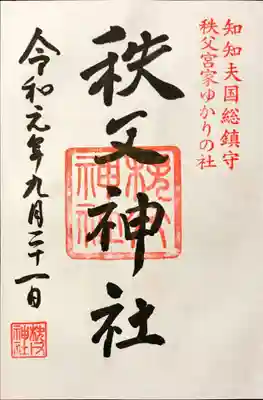 知知夫国総鎮守
秩父宮家ゆかりの社
秩父神社
秩父神社
令和元年九月二十一日
秩父神社